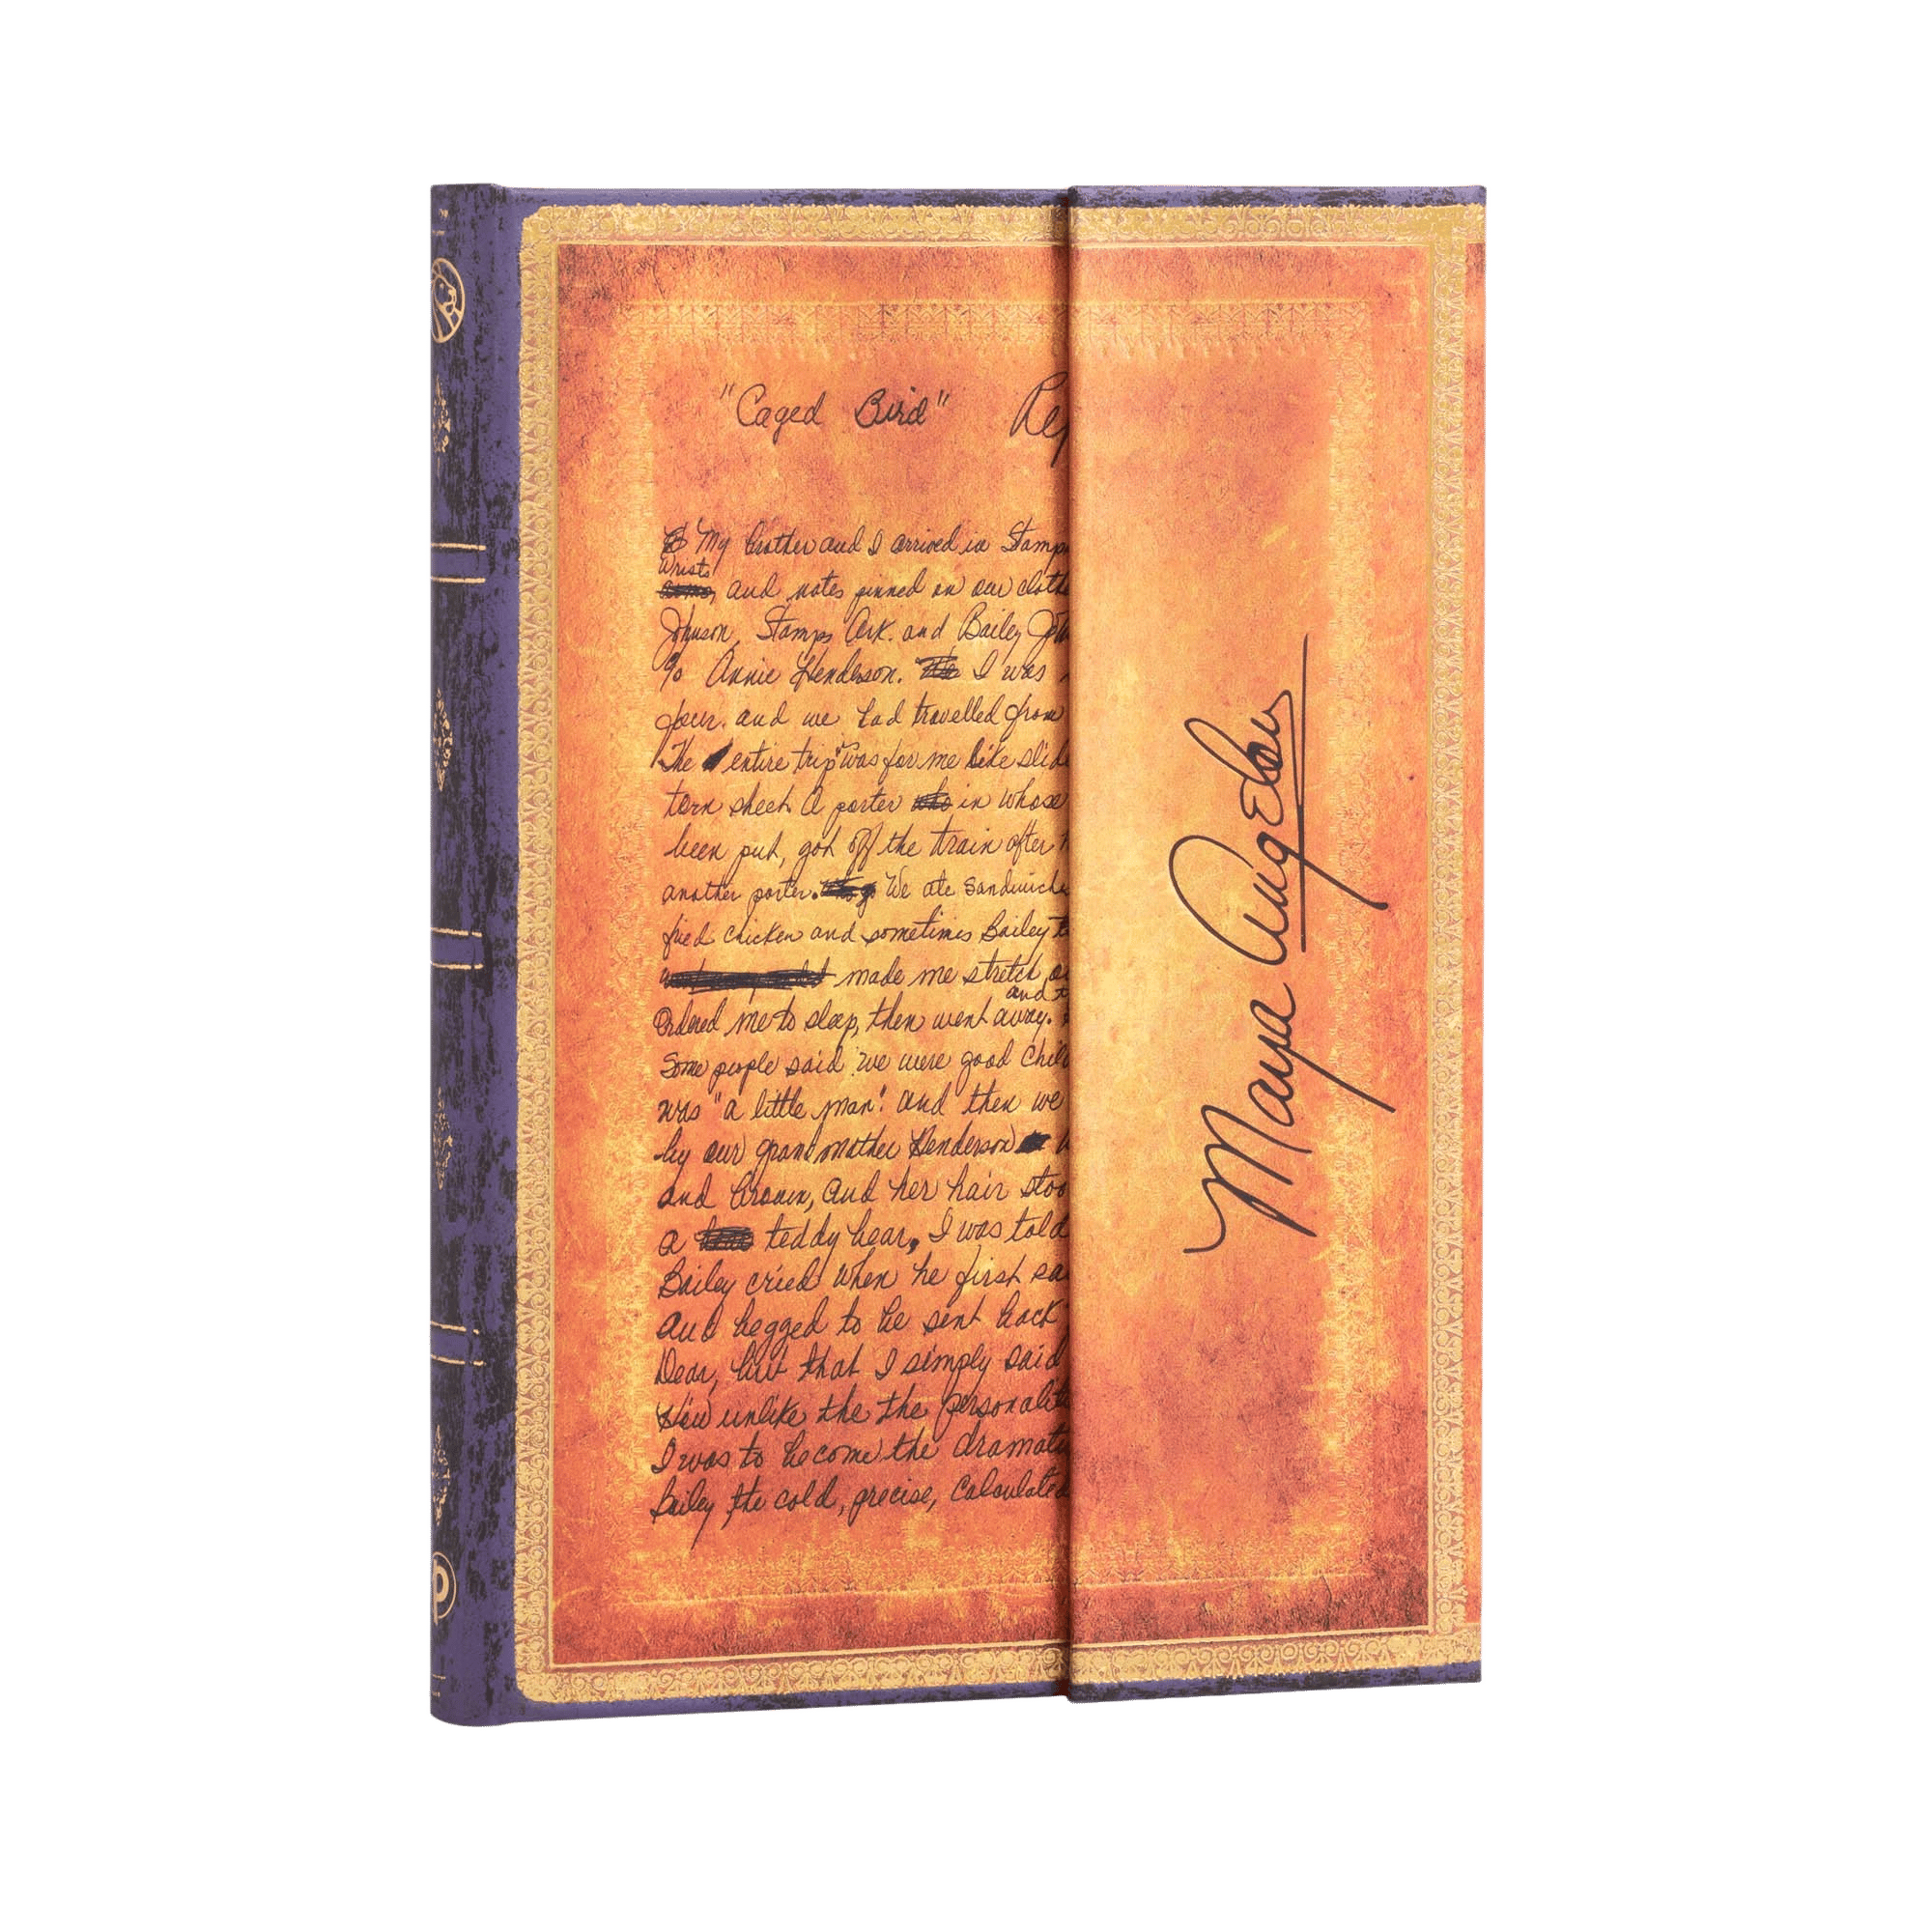 "Caged Bird" Rep
My brother and I arrived in Stamps
wrists
arms, and notes pinned on our cloth
Johnson, Stamps Ark. and Bailey Joh
c/o Annie Henderson. I was
four. and we had travelled from
The entire trip was for me like slid
torn sheet. A porter who in whose
been put, got off the train after
another porter. We ate sandwiche
fried chicken and sometimes Bailey t
made me stretch o
and t
Ordered me to sleep, then went away.
Some people said we were good chil
was "a little man". and then we
by our grandmother Henderson
and brown, and her hair stoo
a teddy bear, I was told
Bailey cried when he first sa
and begged to be sent back
Dear, but that I simply said
How unlike the the personalit
I was to become the dramat
Bailey the cold, precise, calculated
Maya Angelou
p